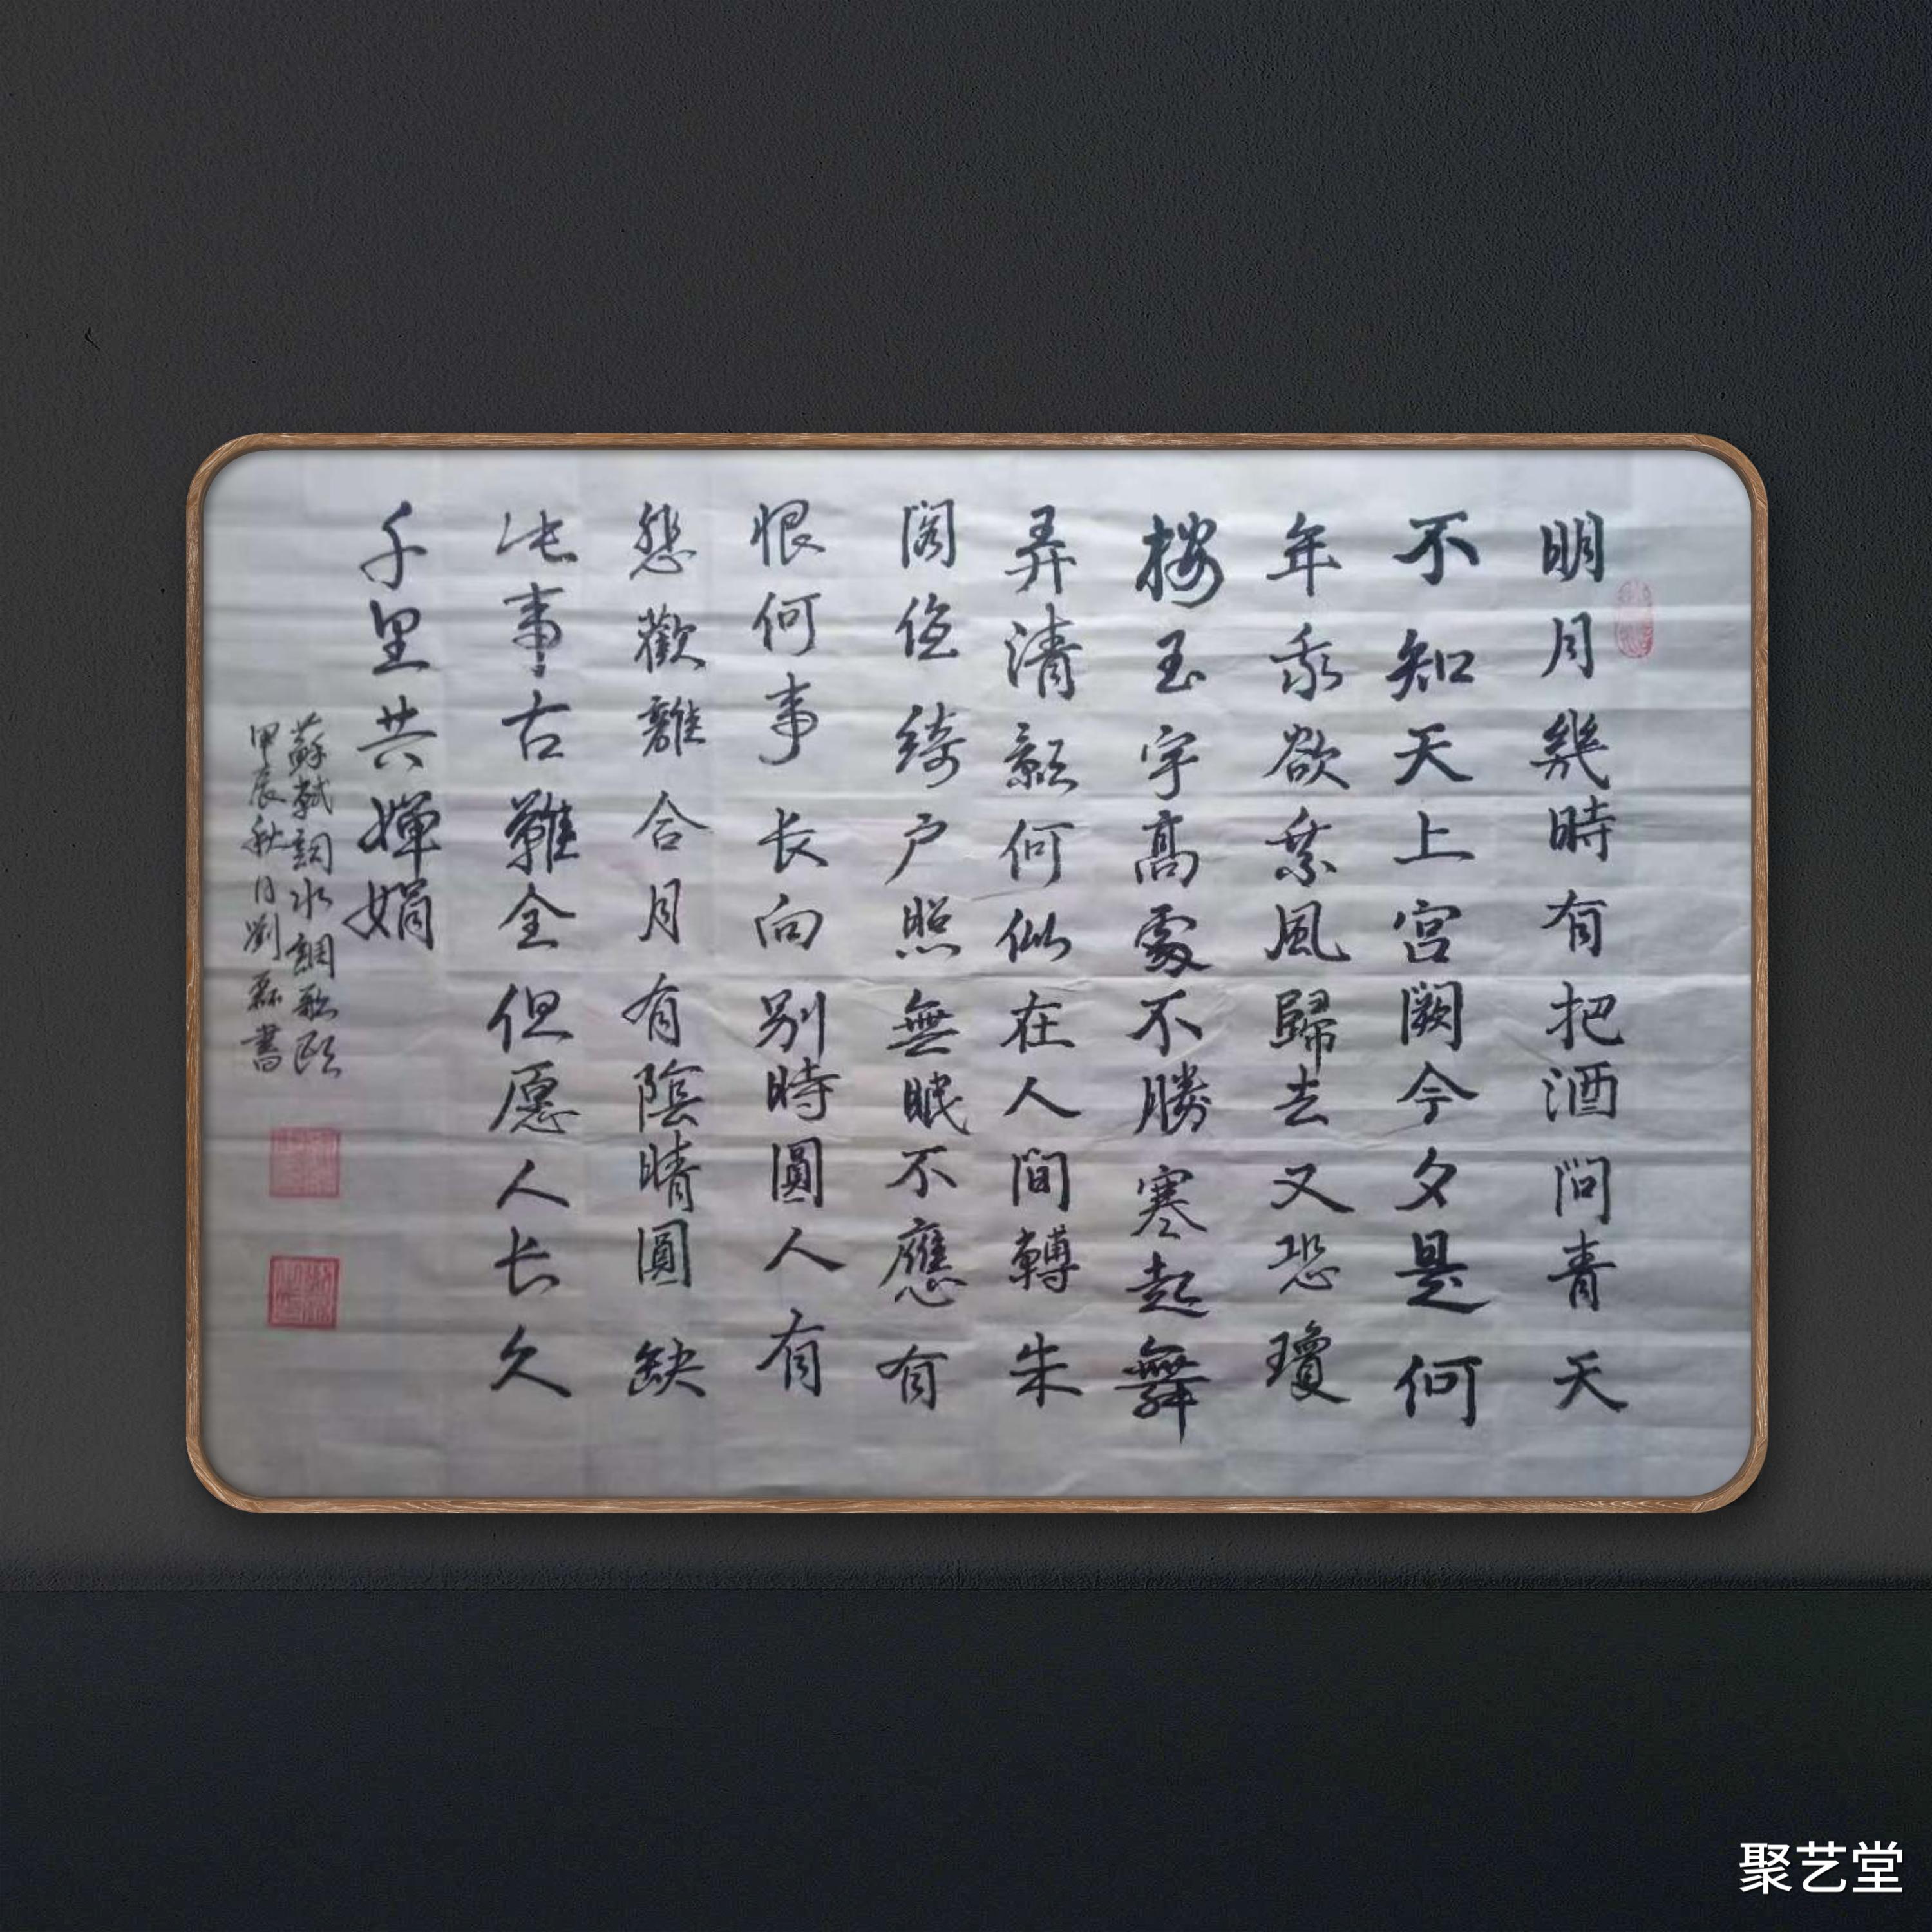 明月幾時有把酒問青天
不知天上宫闕今夕是何
年我欲乘風歸去又恐瓊
楼玉宇高處不勝寒起舞
弄清影何似在人間轉朱
閣低綺户照無眠不應有
恨何事长向别時圓人有
悲歡離合月有陰晴圓缺
此事古難全但愿人长久
千里共嬋娟
蘇軾詞水調歌頭
甲辰秋日劉磊書
聚艺堂